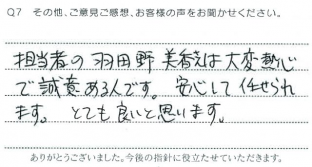 Q7 その他、ご意見ご感想、お客様の声をお聞かせください。
担当者の羽田野美香さんは大変熱心
で誠意ある人です。安心して任せられ
ます。とても良いと思います。
ありがとうございました。今後の指針に役立たせていただきます。